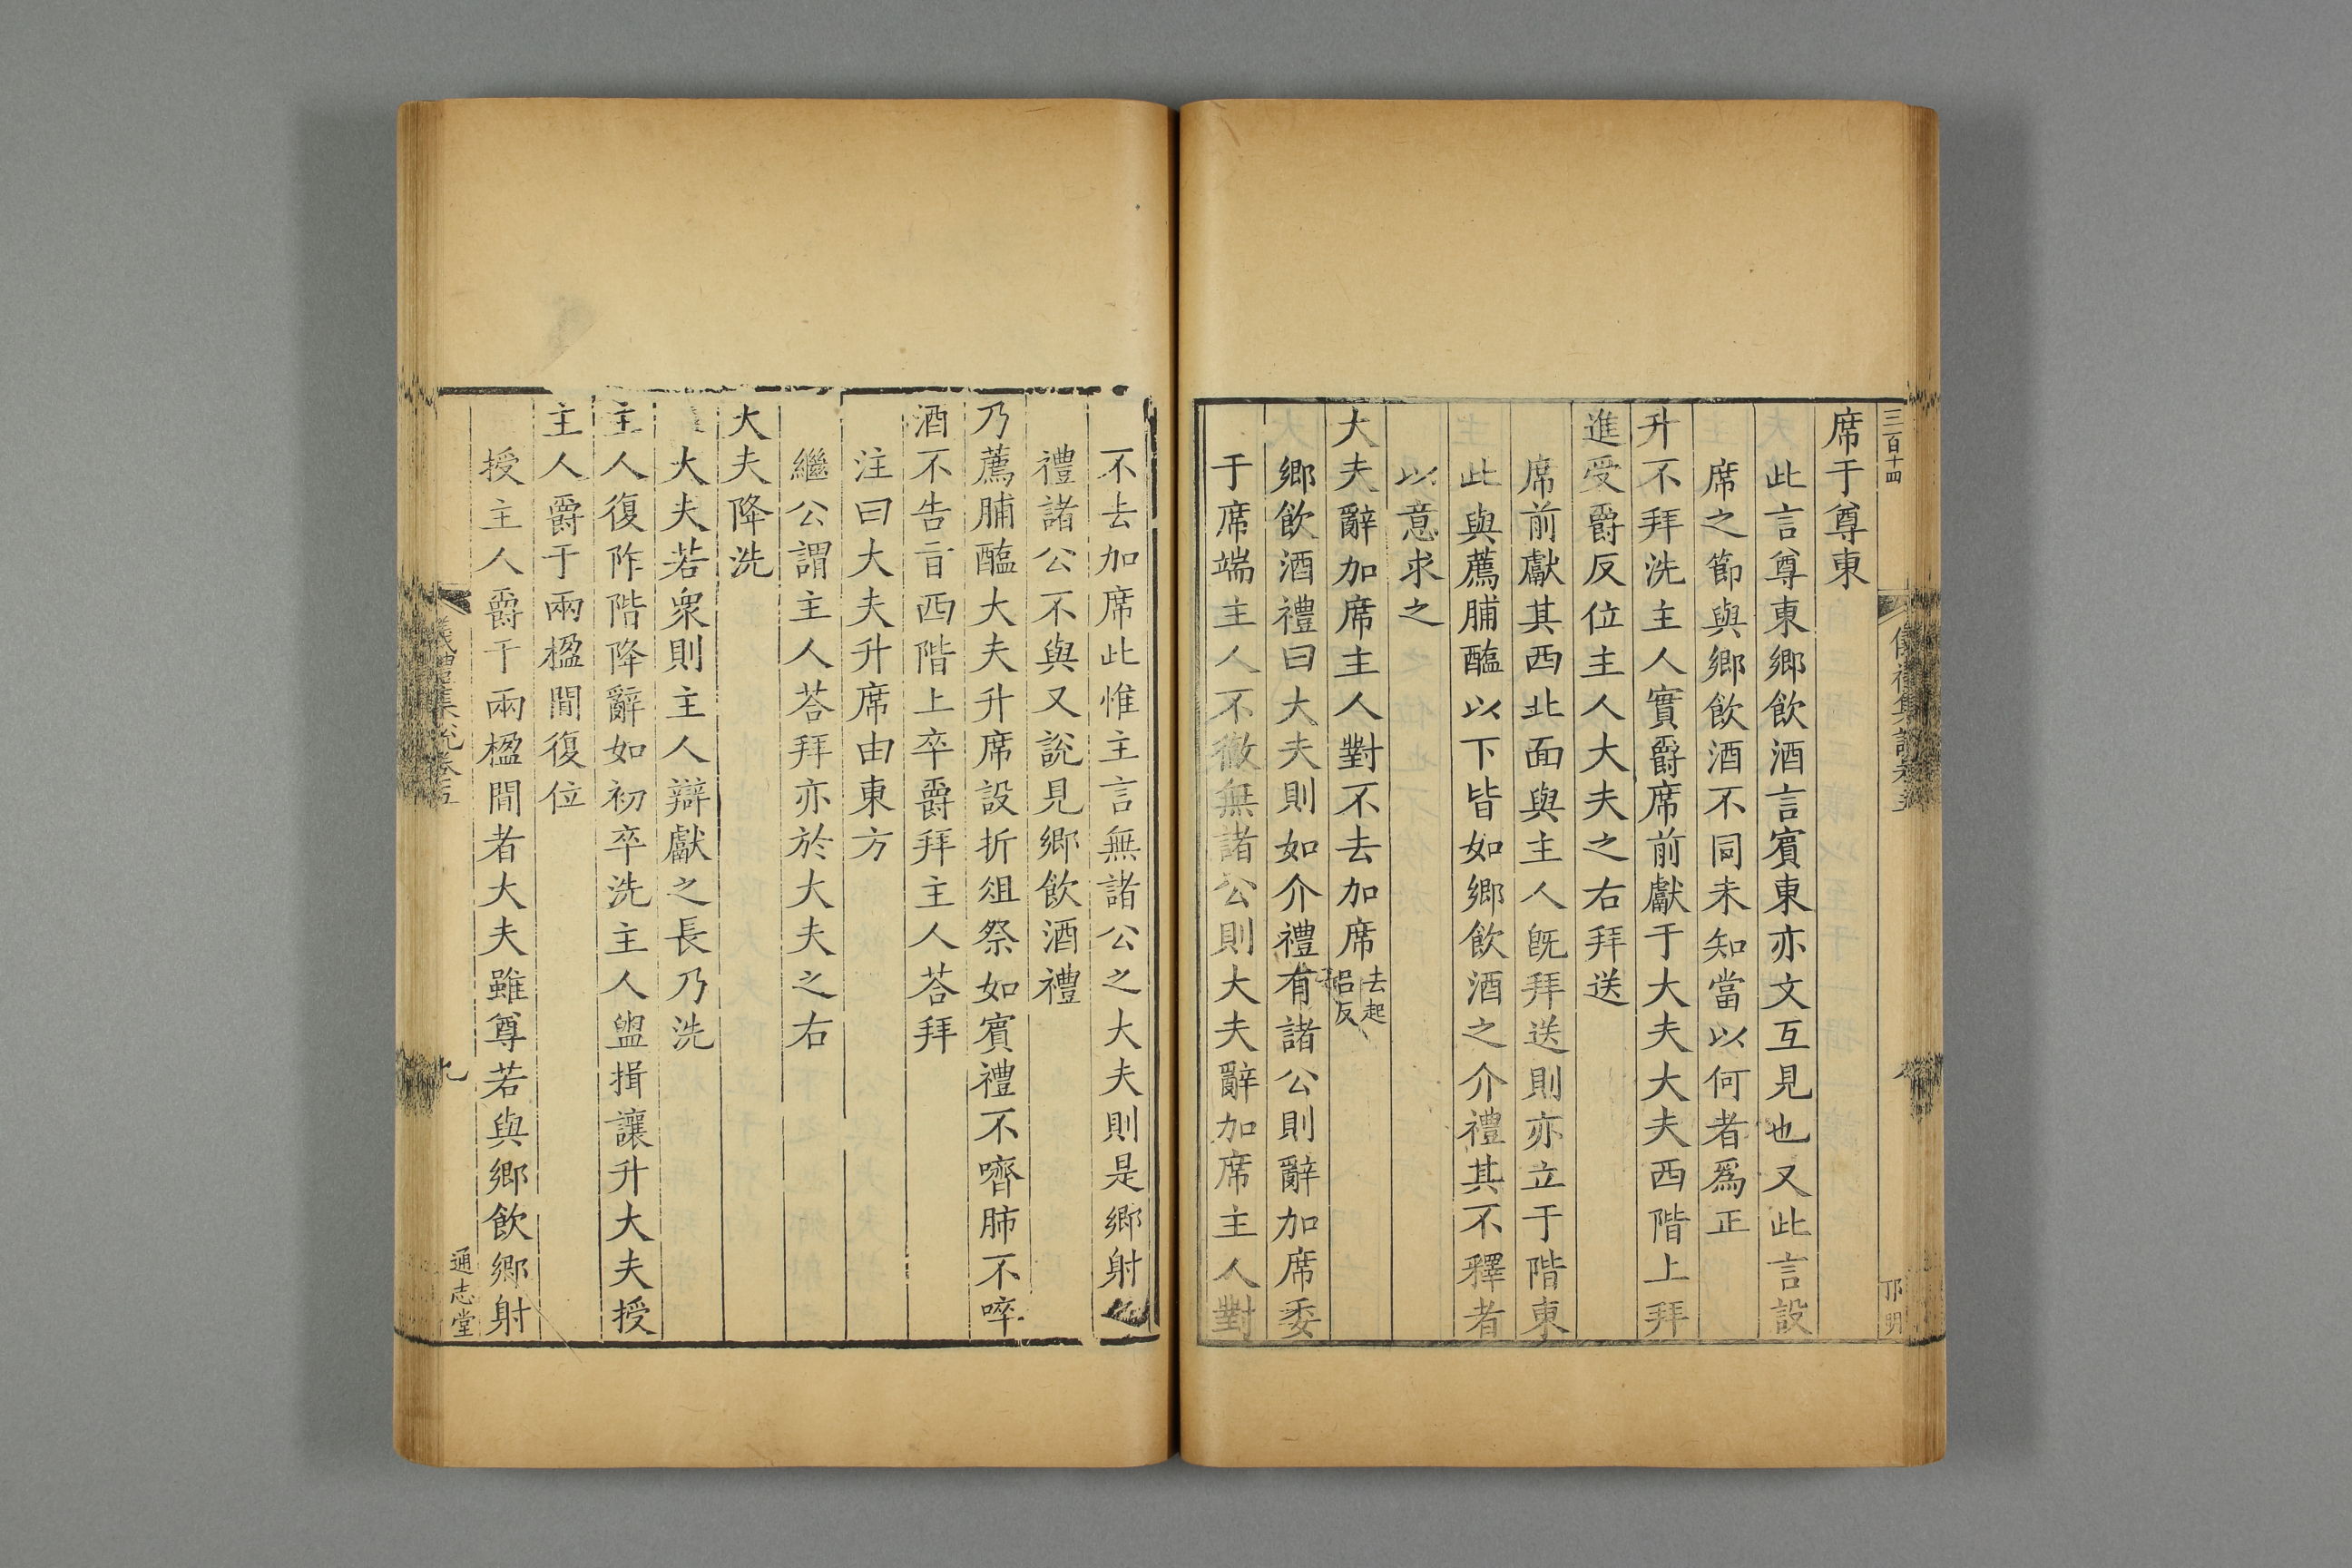 三百十四
儀禮集說卷五
八
邝明
席于尊東
此言尊東鄉飲酒言賓東亦文互見也又此言設
席之節與鄉飲酒不同未知當以何者爲正
升不拜洗主人實爵席前獻于大夫大夫西階上拜
進受爵反位主人大夫之右拜送
席前獻其西北面與主人旣拜送則亦立于階東
此與薦脯醢以下皆如鄉飲酒之介禮其不釋者
以意求之
大夫辭加席主人對不去加席去起呂反
鄉飲酒禮曰大夫則如介禮有諸公則辭加席委
于席端主人不徹無諸公則大夫辭加席主人對
不去加席此惟主言無諸公之大夫則是鄉射之
禮諸公不與又說見鄉飲酒禮
乃薦脯醢大夫升席設折俎祭如賓禮不嚌肺不啐
酒不告旨西階上卒爵拜主人荅拜
注曰大夫升席由東方
繼公謂主人荅拜亦於大夫之右
大夫降洗
大夫若衆則主人辯獻之長乃洗
主人復阼階降辭如初卒洗主人盥揖讓升大夫授
主人爵于兩楹間復位
授主人爵于兩楹間者大夫雖尊若與鄉飲鄉射
儀禮集說卷五
九
通志堂